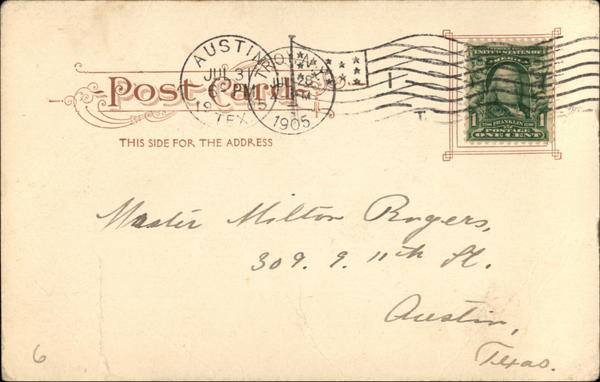 AUSTIN
JUL 31
6 PM
19 5
TEX
TROY, N.Y.
JUL 28
1905
Post Card.
THIS SIDE FOR THE ADDRESS
UNITED STATES OF AMERICA
1 FRANKLIN 1
POSTAGE
ONE CENT
Master Milton Rogers,
309. 9. 11th St.
Austin,
Texas.
6